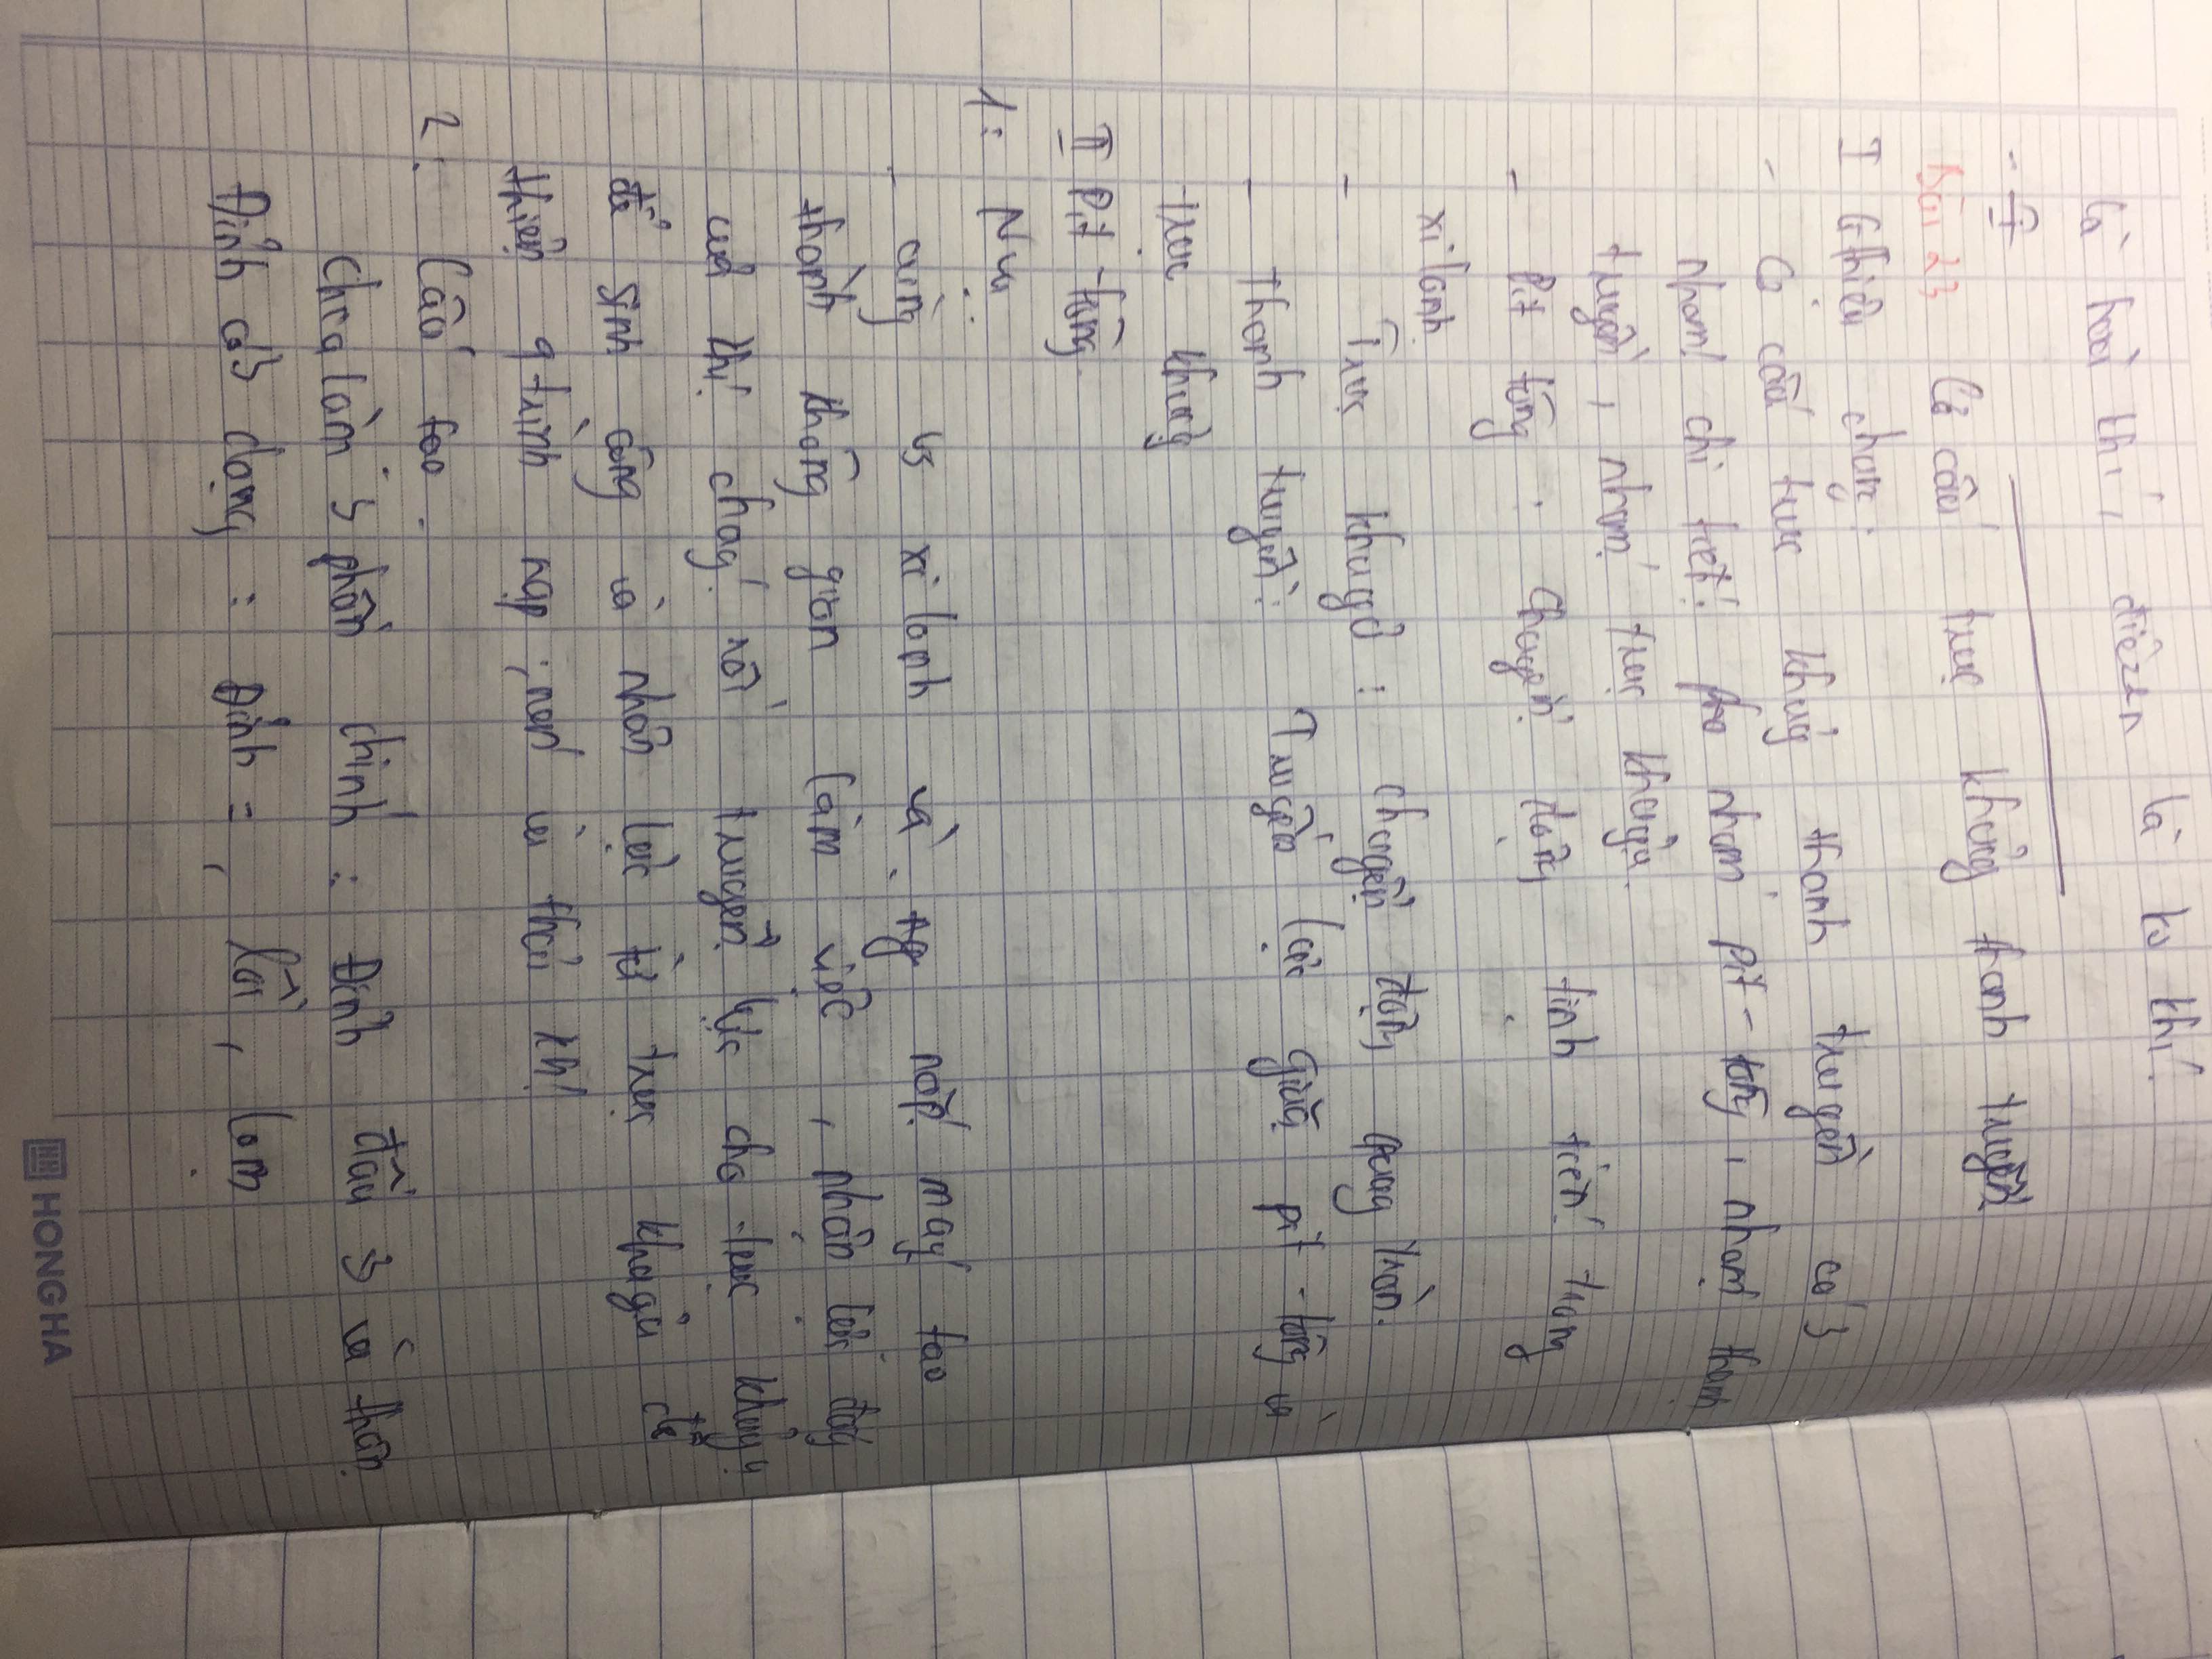 là hoà khí, điêzen là ko khí.
Bài 23 Cơ cấu trục khuỷu thanh truyền
I Ghiệu chung.
- Cơ cấu trục khuỷu thanh truyền có 3
nhóm chi tiết: nhóm pit-tông, nhóm thanh
truyền, nhóm trục khuỷu.
- Pit tông: Chuyển động tịnh tiến trong
xilanh
- Trục khuỷu: chuyển động quay tròn.
- Thanh truyền: Truyền lực giữa pit-tông và
trục khuỷu
II Pit-tông.
1: N.v:
- cùng vs xilanh và nắp máy tạo
thành không gian làm việc, nhận lực đẩy
của khí cháy rồi truyền lực cho trục khuỷu
để sinh công và nhận lực từ trục khuỷu để
thiện q trình nạp, nén và thải khí
2: Cấu tạo.
Chia làm 3 phần chính: Đỉnh đầu và thân
Đỉnh có 3 dạng: Đỉnh =, lồi, lõm
HONG HA